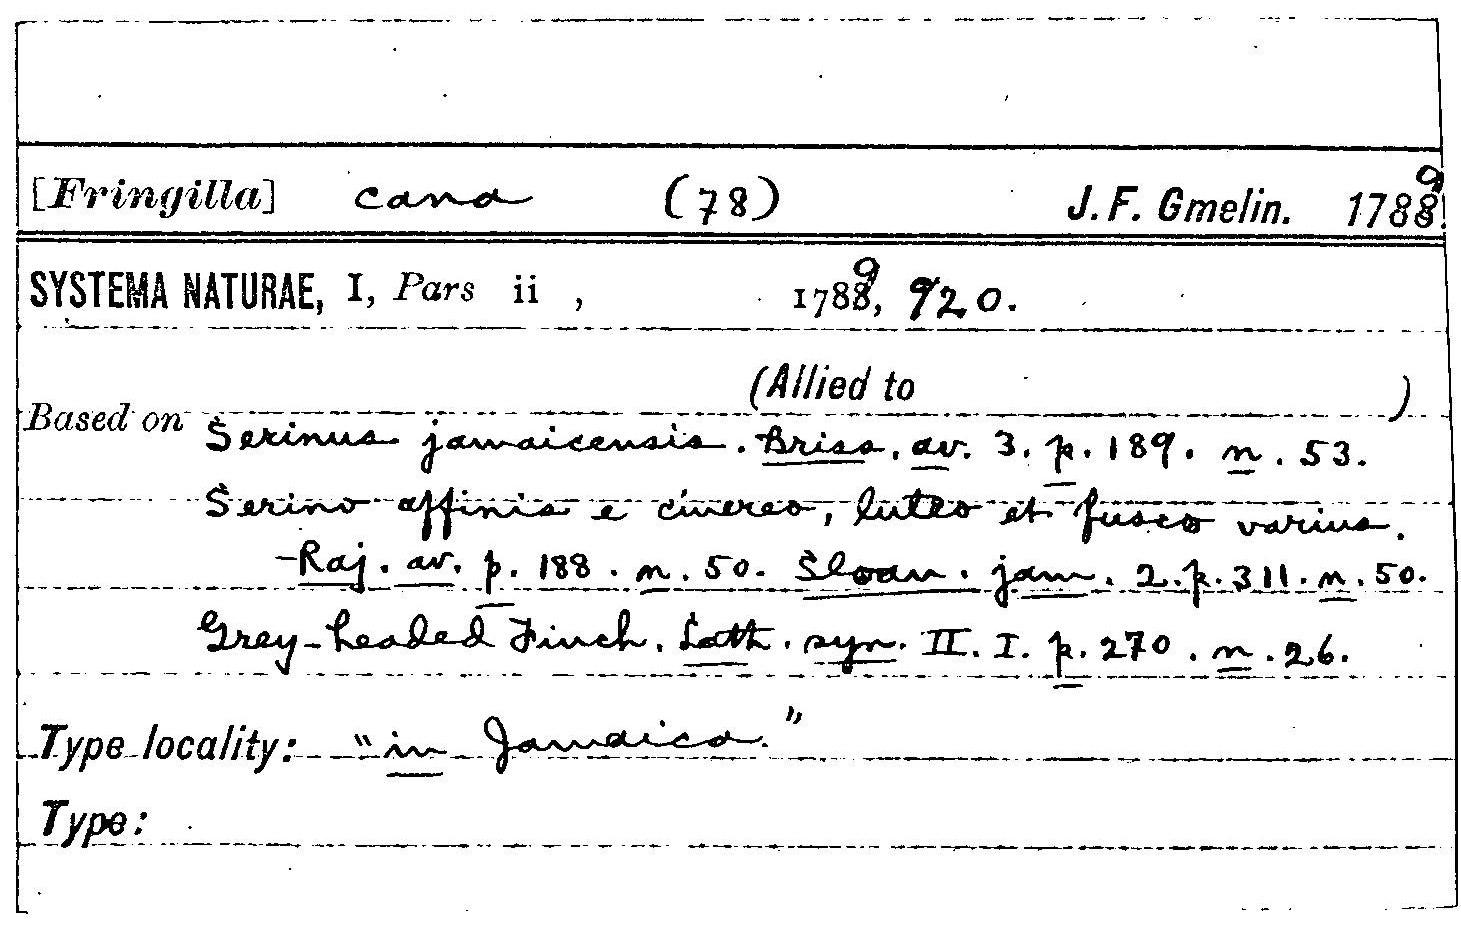 [Fringilla] cana (78) J. F. Gmelin. 1789
SYSTEMA NATURAE, I, Pars ii , 1789, 920.
(Allied to )
Based on Serinus jamaicensis. Briss. av. 3. p. 189. n. 53.
Serino affinis e cinereo, luteo et fusco varius.
-Raj. av. p. 188. n. 50. Sloan. jam. 2. p. 311. n. 50.
Grey-headed Finch. Lath. syn. II. I. p. 270. n. 26.
Type locality: "in Jamaica."
Type: